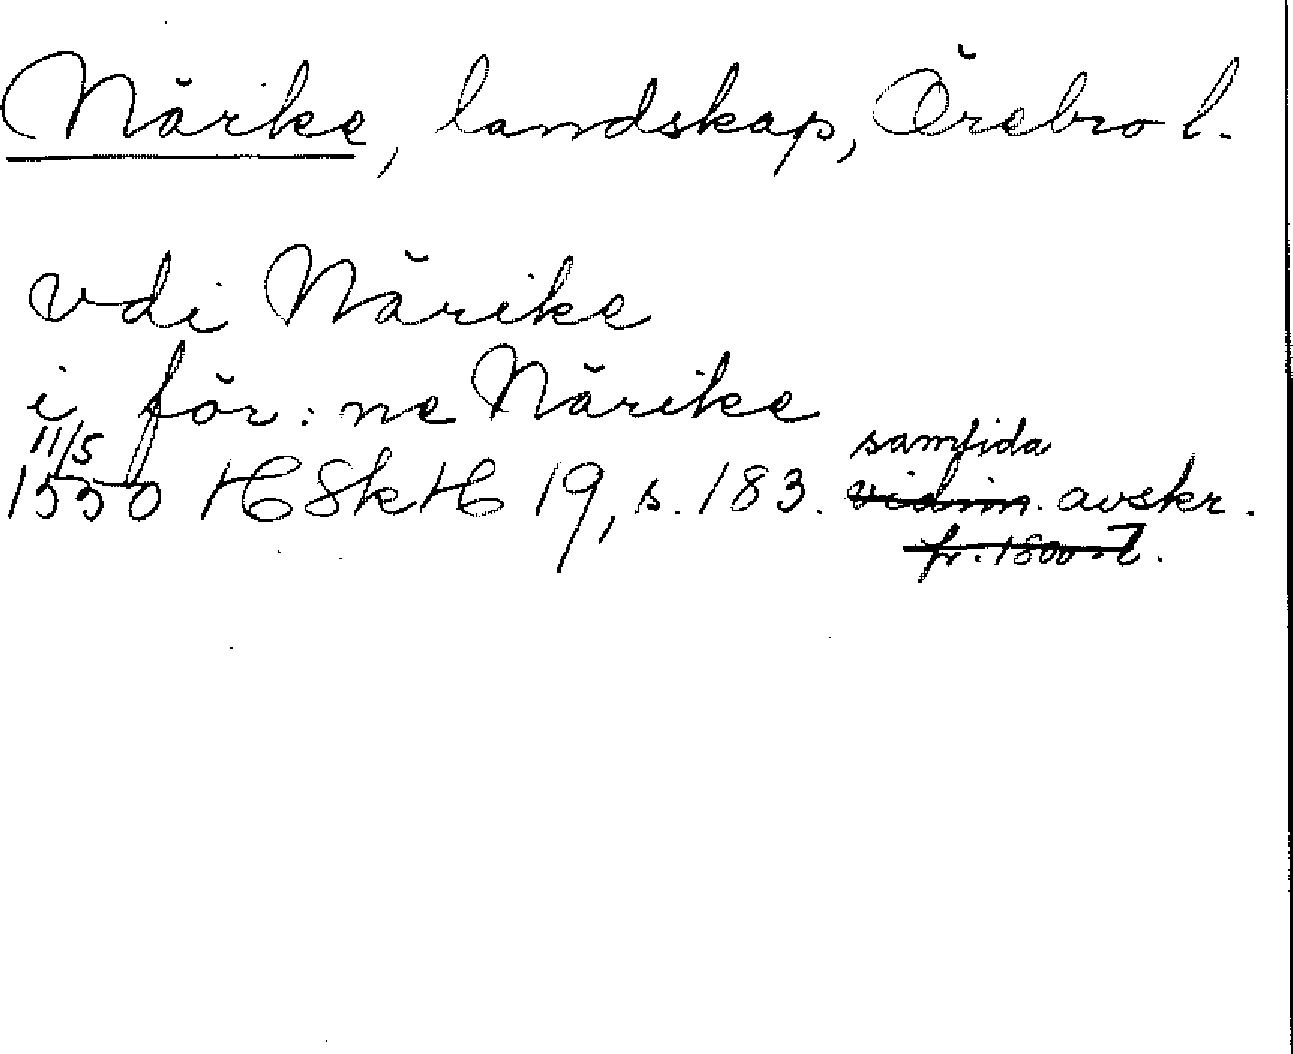 Närke, landskap, Örebro l.
vdi Närike
i för:ne Närike
11/5
1550 HSkH 19, s. 183. samtida vidim. avskr.
fr. 1800-t.